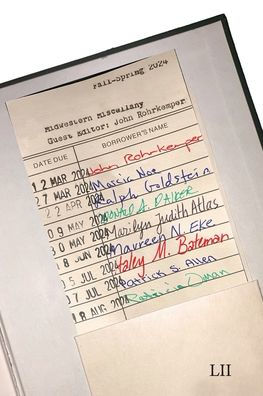 Fall-Spring 2024
Midwestern Miscellany
Guest Editor: John Rohrkemper
DATE DUE BORROWER'S NAME
12 MAR 2024 John Rohrkemper
27 MAR 2024 Marcia Noe
22 APR 2024 Ralph Goldstein
09 MAY 2024 A. PARKER
30 MAY 2024 Marilyn Judith Atlas
18 JUN 2024 Maureen N. Eke
05 JUL 2024 Haley M. Bateman
07 JUL 2024 Patrick S. Allen
18 AUG 2024 Patricia Oman
LII